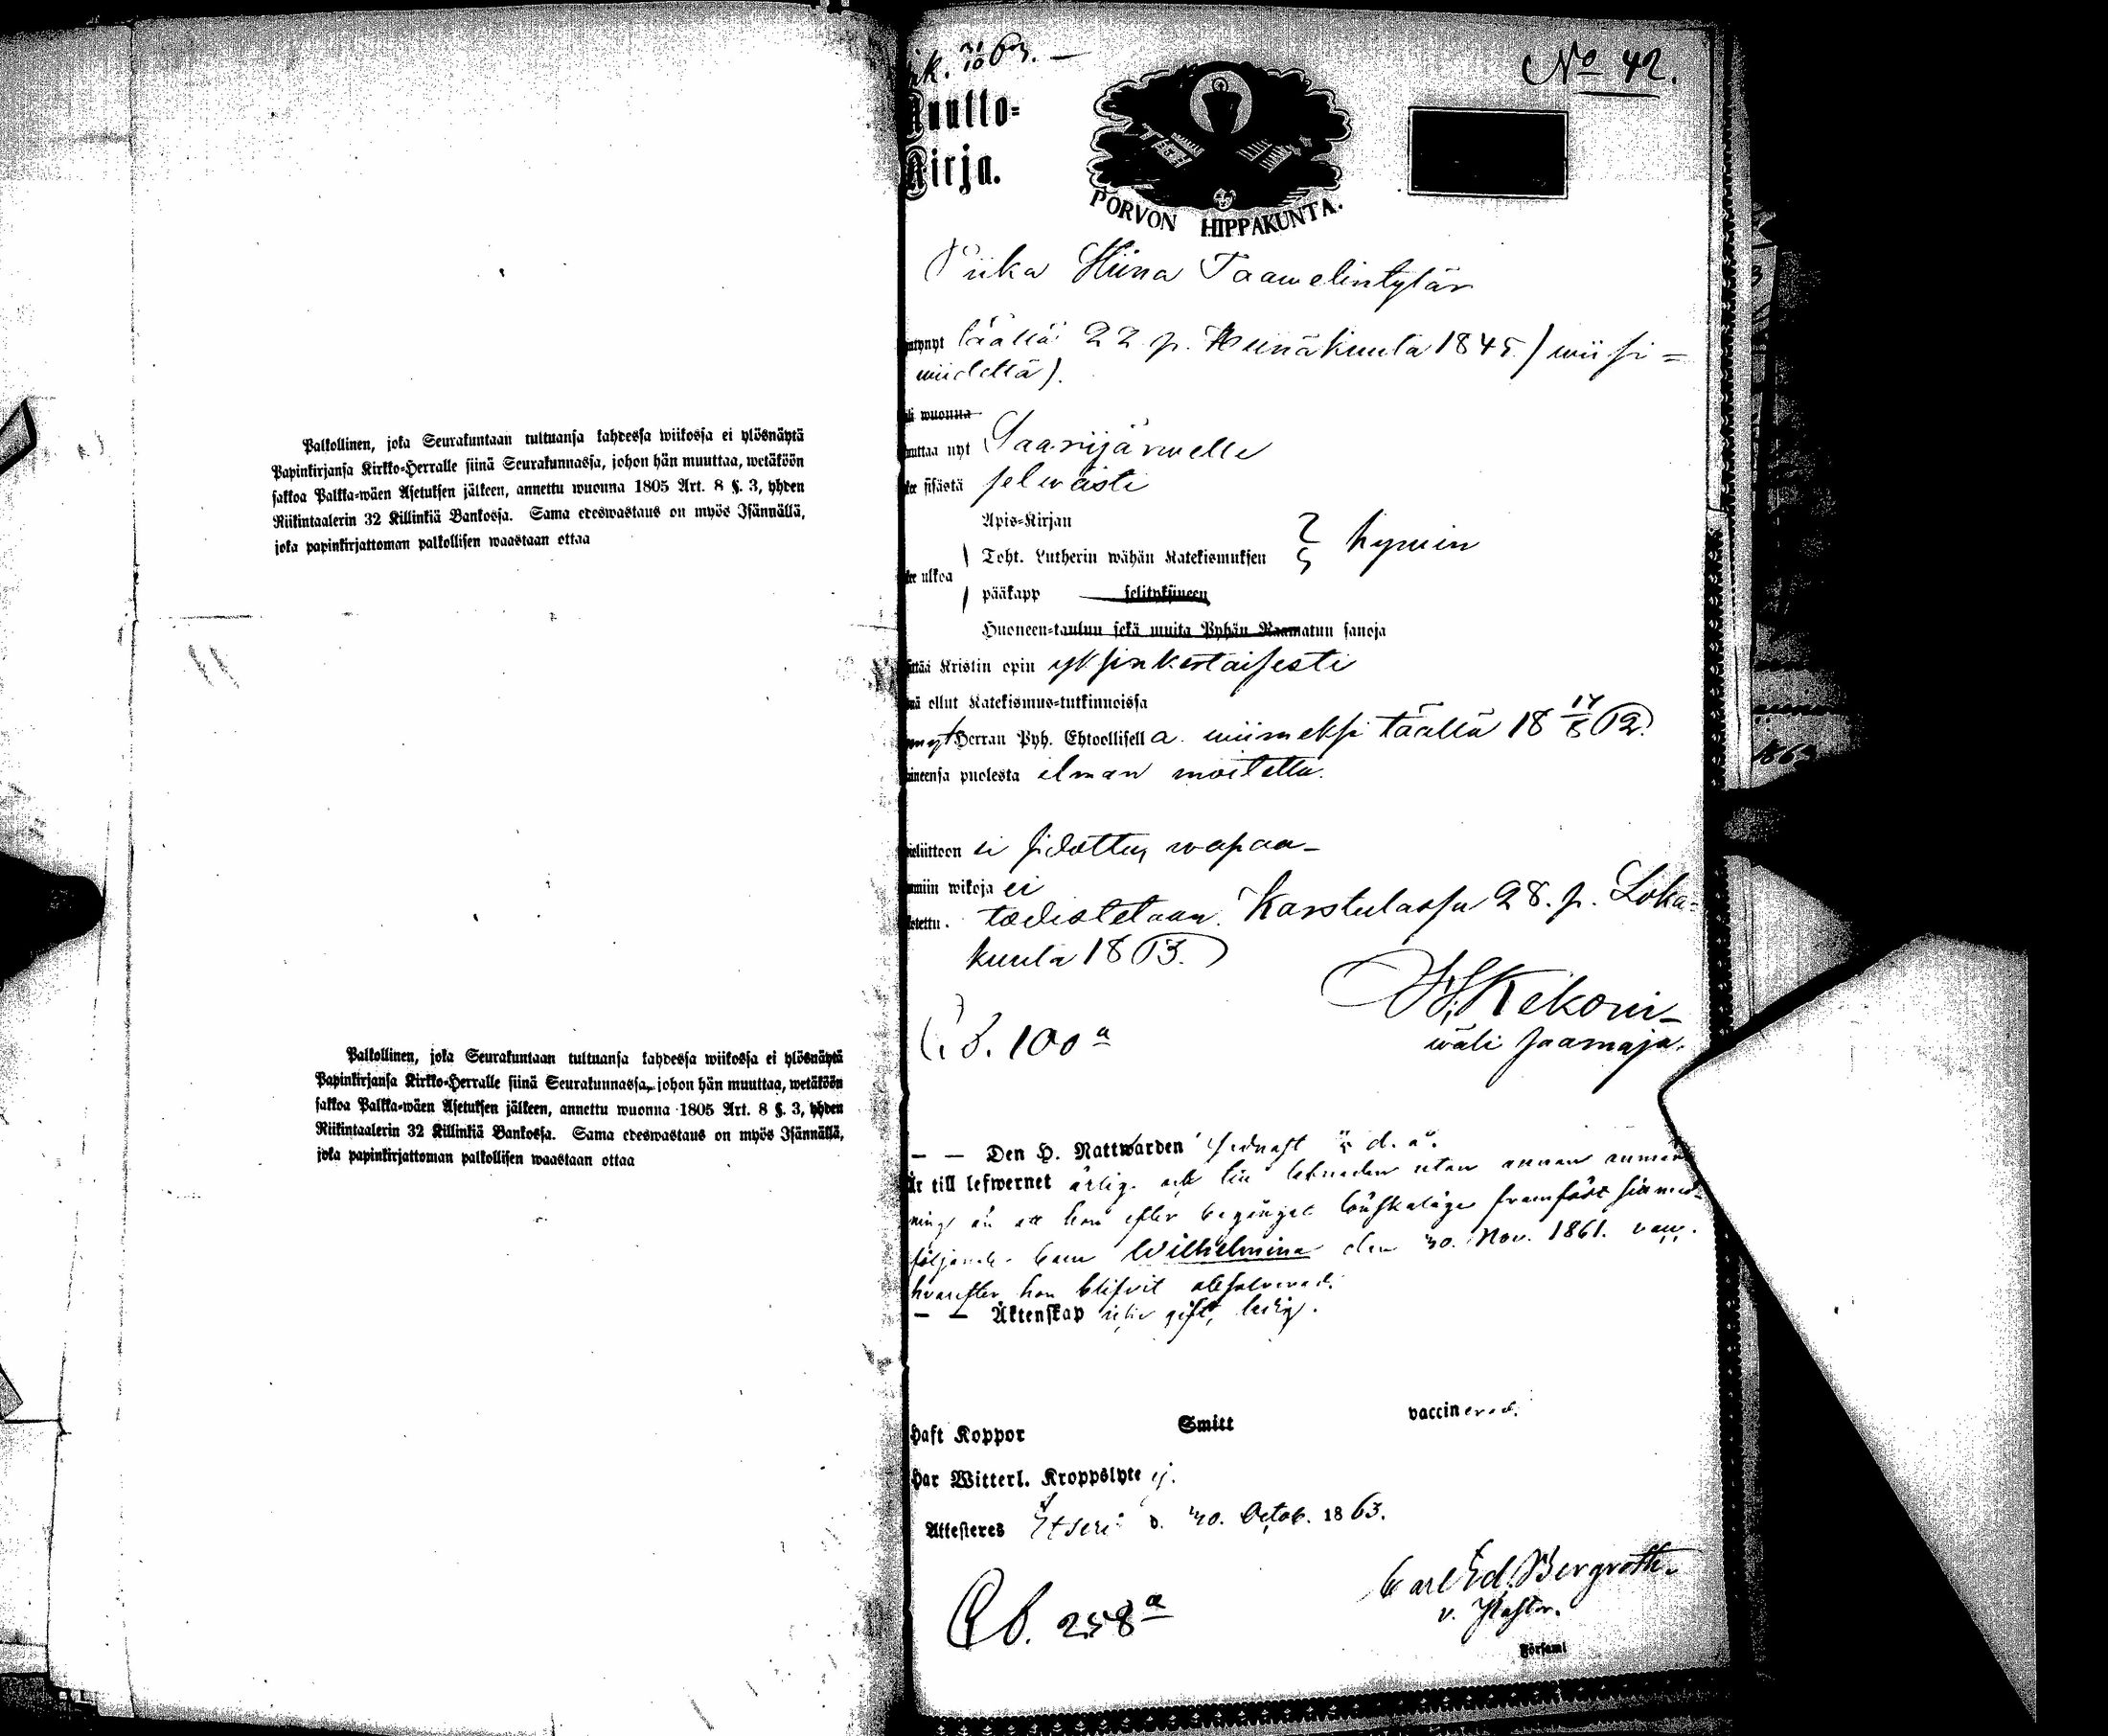 Palkollinen, joka Seurakuntaan tultuansa kahdessa wiikossa ei ylösnäytä
Papinkirjansa Kirkko-Herralle siinä Seurakunnassa, johon hän muuttaa, wetäköön
sakkoa Palkka-wäen Asetuksen jälkeen, annettu wuonna 1805 Art. 8 §. 3, yhden
Riikintaalerin 32 Killinkiä Bankossa. Sama edeswastaus on myös Isännällä,
joka papinkirjattoman palkollisen waastaan ottaa
Palkollinen, joka Seurakuntaan tultuansa kahdessa wiikossa ei ylösnäytä
Papinkirjansa Kirkko-Herralle siinä Seurakunnassa, johon hän muuttaa, wetäköön
sakkoa Palkka-wäen Asetuksen jälkeen, annettu wuonna 1805 Art. 8 §. 3, yhden
Riikintaalerin 32 Killinkiä Bankossa. Sama edeswastaus on myös Isännällä,
joka papinkirjattoman palkollisen waastaan ottaa
No 42.
Muutto-
Kirja.
PORVON HIPPAKUNTA.
Piika Hiina Taawelintytär
täällä 22 p. Heinäkuuta 1845 / wiisi=
wiidettä).
wuonna
nyt Saarijärwelle
sisästä selwästi
Apis-Kirjan
Toht. Lutherin wähän Katekismuksen hywin
ulkoa
pääkapp selityksineen
Huoneen-taulun sekä muita Pyhän Raamatun sanoja
Kristin opin yksinkertaisesti
ollut Katekismus-tutkinnoissa
Herran Pyh. Ehtoollisella wiimeksi täällä 18 17/8 62.
puolesta ilman moitetta.
ei sidottu, wapaa
wikoja ei
todistetaan. Karstulassa 28. p. Loka-
kuuta 1863.
Kekoni
wäli saarnaja.
C.B. 100 a
— — Den H. Nattwarden sednast d. å.
Är till lefwernet ärlig och utan annan anmärk
ning än att hon efter framfödt
följande barn Wilhelmina den 30. Nov. 1861.
hvarefter hon blifvit absolverad.
— — Äktenskap gift, ledig.
Haft Koppor Smitt vaccinerad.
Har Witterl. Kroppslyte ej.
Attesteres Etseri d. 30. Octob. 1863.
Carl Ed. Bergroth
v. Pastor.
C.b. 258 a
Församl